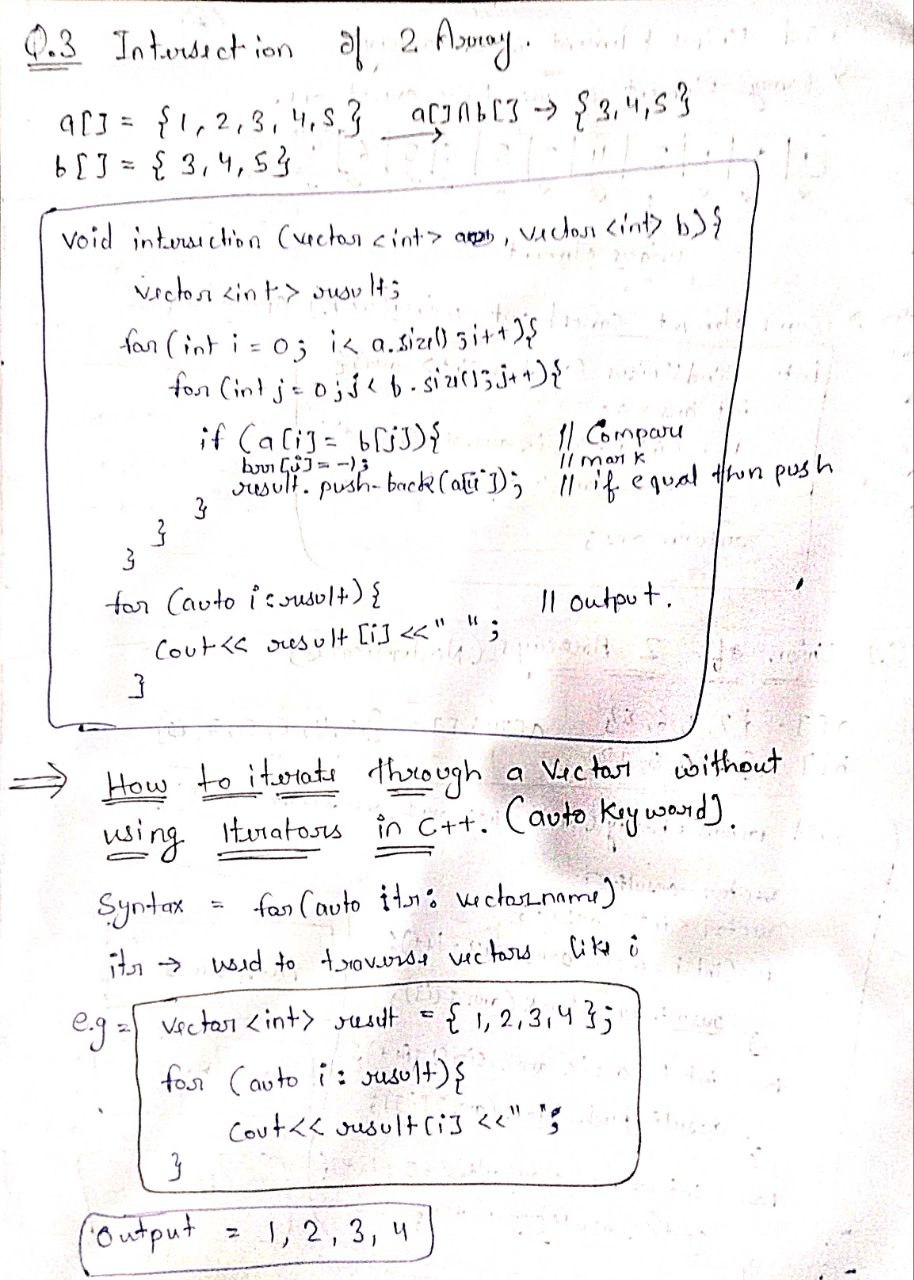 Q.3 Intersection of 2 Array.
a[] = {1, 2, 3, 4, 5} a[]∩b[] → {3, 4, 5}
b[] = {3, 4, 5}
void intersection (vector <int> , vector <int> b){
vector <int> result;
for (int i = 0; i < a.size() ; i++){
for (int j = 0; j < b.size(); j++){
if (a[i] = b[j]){ // Compare
[j] = -1; // mark
result.push-back(a[i]); // if equal then push
}
}
}
for (auto i : result){ // output.
Cout << result [i] << " ";
}
⇒ How to iterate through a Vector without
using Iterators in C++. (auto keyword).
Syntax = for (auto itr : vector_name)
itr → used to traverse vectors like i
e.g = vector <int> result = { 1, 2, 3, 4 };
for (auto i : result){
Cout << result [i] << " ";
}
Output = 1, 2, 3, 4